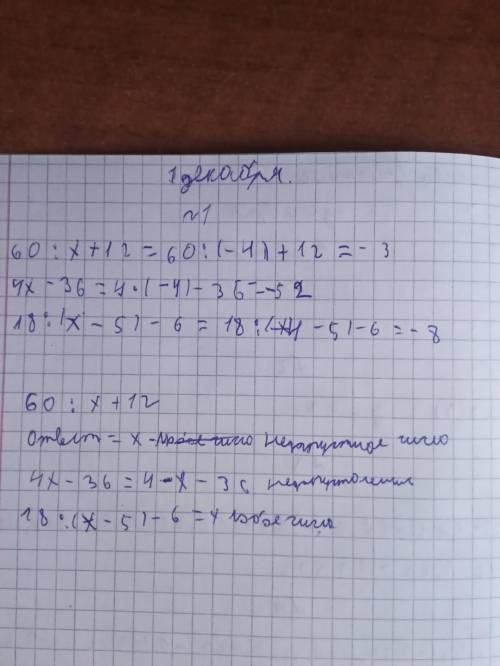 1 декабря.
№1
60 : x + 12 = 60 : (-4) + 12 = - 3
4x - 36 = 4 · (-4) - 36 = -52
18 : (x - 5) - 6 = 18 : (-4 - 5) - 6 = - 8
60 : x + 12
Ответ = x - число число
4x - 36 = 4 - x - 36
18 : (x - 5) - 6 = x